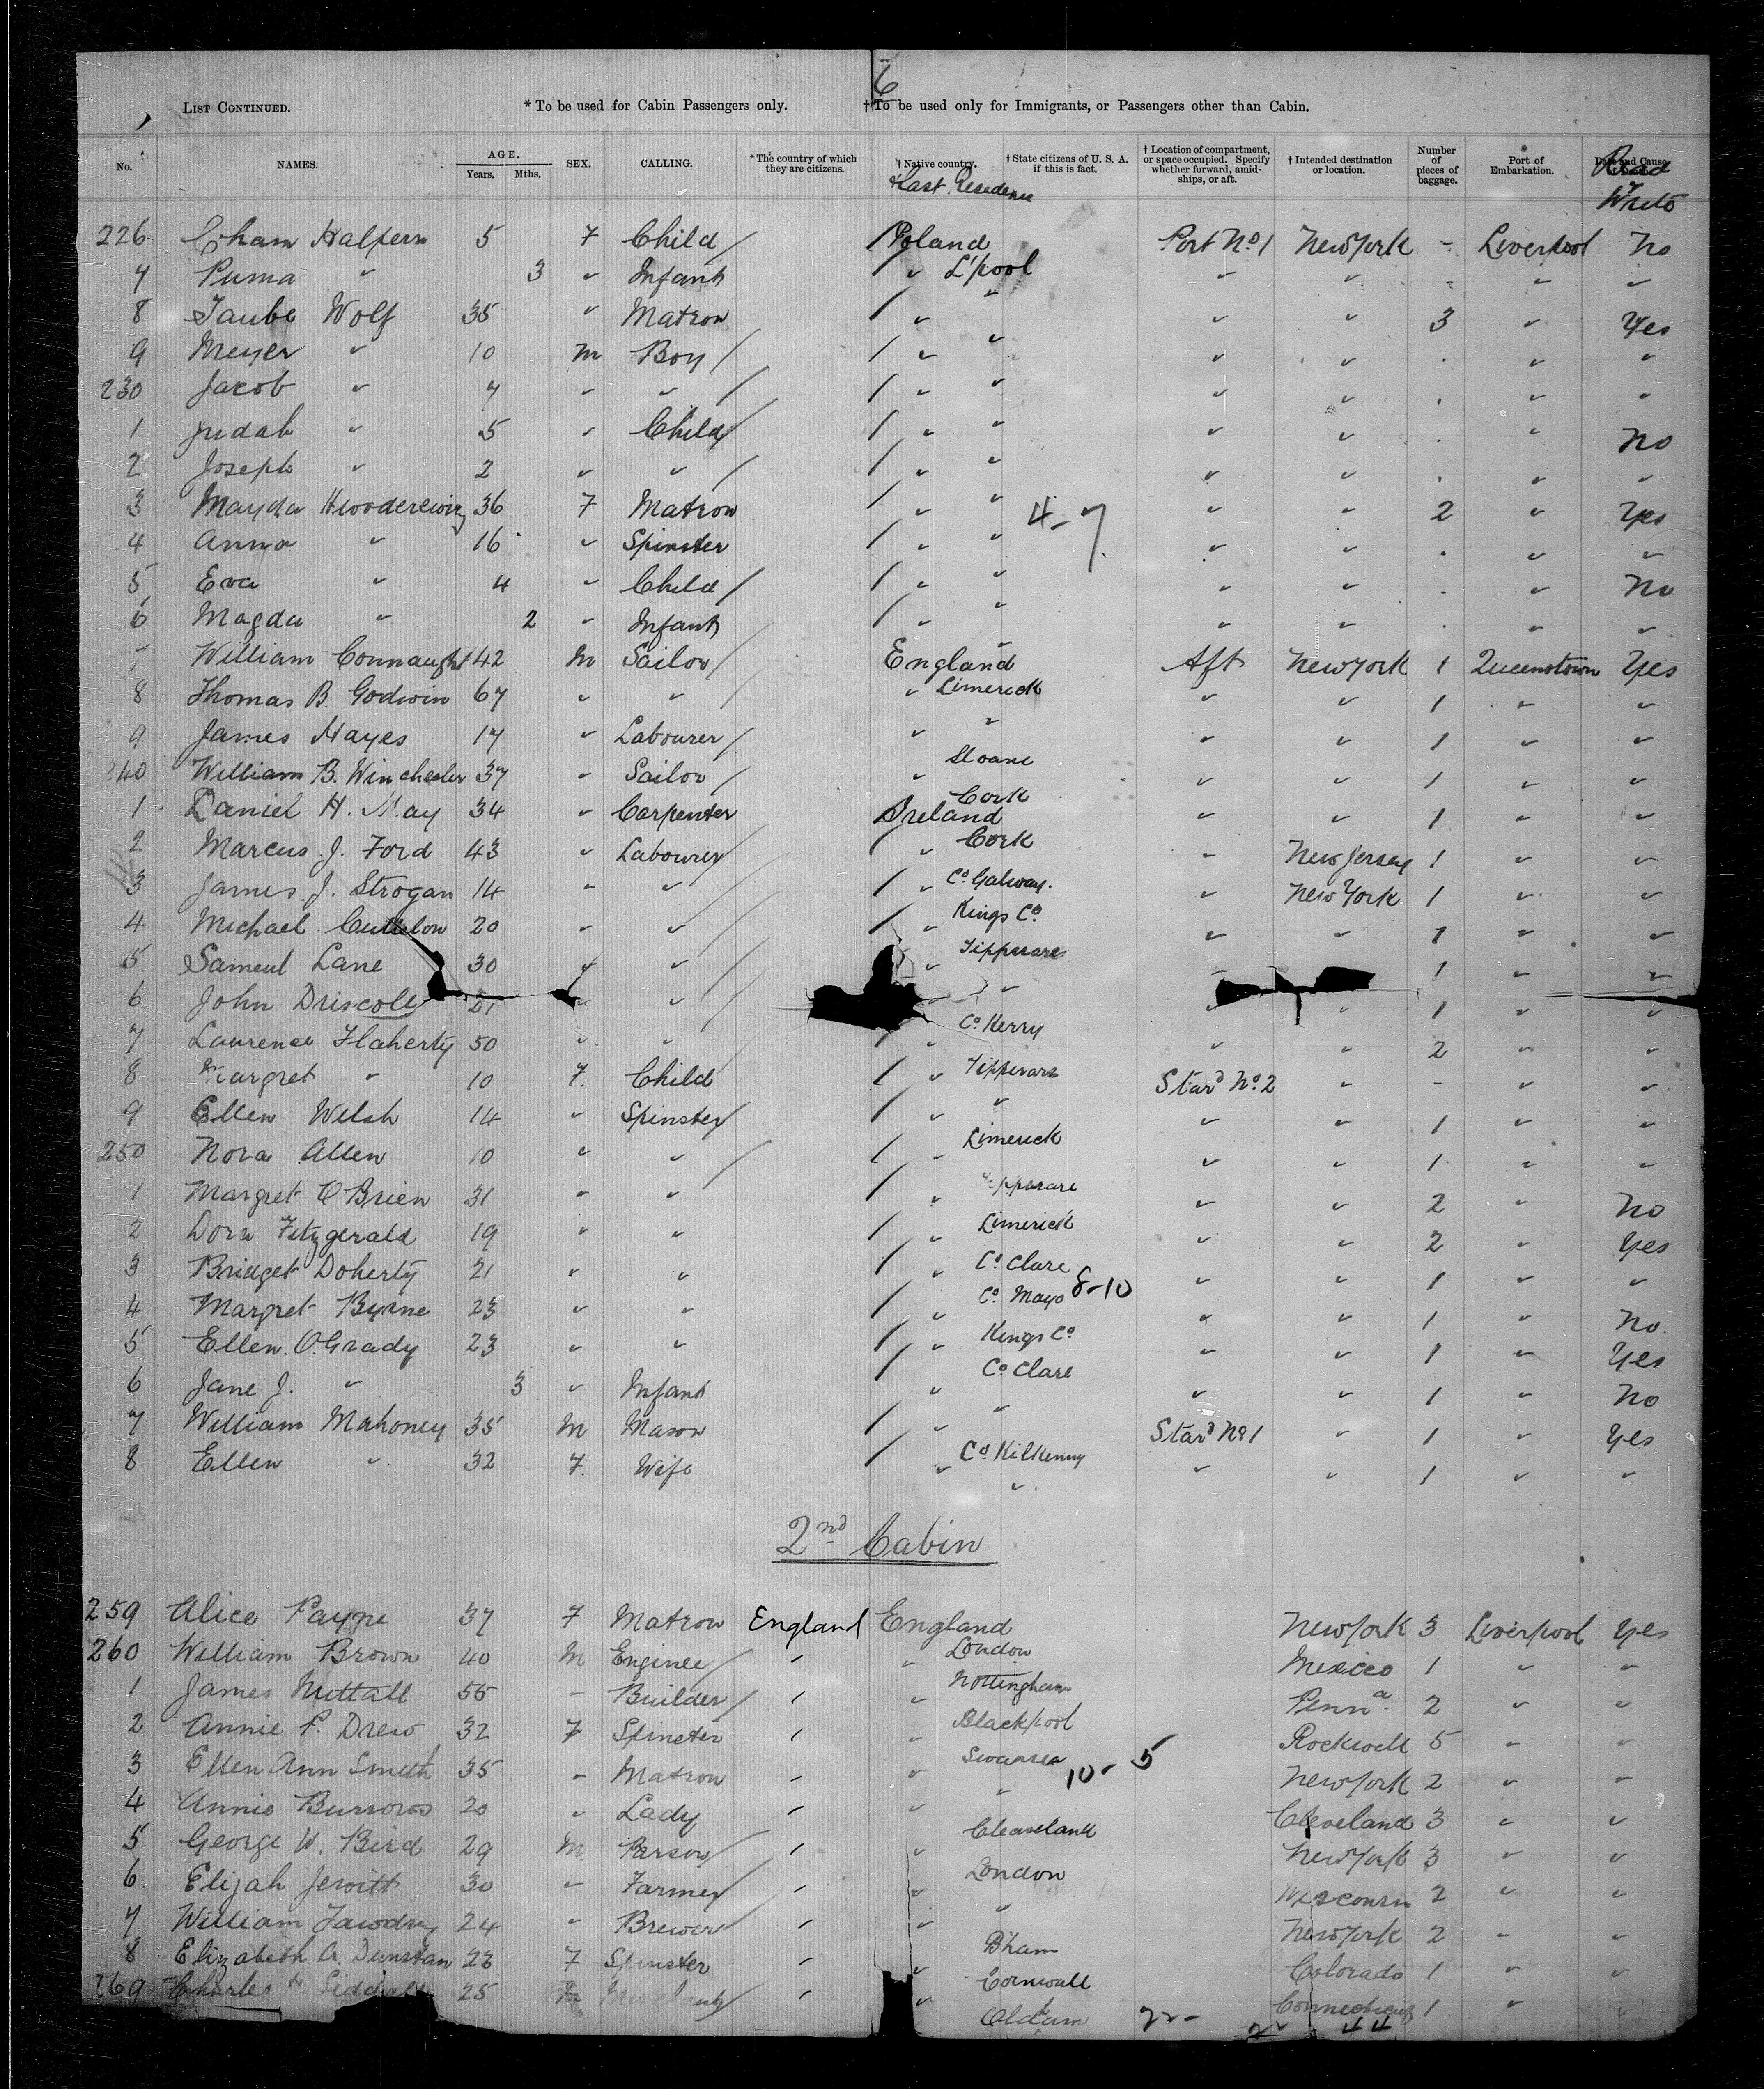 6
LIST CONTINUED. * To be used for Cabin Passengers only. † To be used only for Immigrants, or Passengers other than Cabin.
No. NAMES. AGE. Years. Mths. SEX. CALLING. * The country of which they are citizens. † Native country. † State citizens of U. S. A. if this is fact. † Location of compartment, or space occupied. Specify whether forward, amidships, or aft. † Intended destination or location. Number of pieces of baggage. Port of Embarkation. Date and Cause
Last Residence Read Write
226 Cham Halpern 5 F Child / Poland Port No 1 New York - Liverpool No
7 Puma " 3 " Infant " L'pool " " - " "
8 Taube Wolf 35 " Matron / " " " " 3 " Yes
9 Meyer " 10 M Boy / / " " " " . " "
230 Jacob " 7 " " / / " " " " . " "
1 Judah " 5 " Child / / " " " " . " No
2 Joseph " 2 " " / / " " " " . " "
3 Mayda 36 F Matron / " " " " 2 " Yes
4 Anna " 16 " Spinster / " " 4-7 " " . " "
5 Eva " 4 " Child / / " " " " . " No
6 Magda " 2 " Infant / " " " " . " "
7 William Connaught 42 M Sailor / England " Aft New York 1 Queenstown Yes
8 Thomas B. Godwin 67 " " / " Limerick " " 1 " "
9 James Hayes 17 " Labourer / " " " " 1 " "
240 William B. Winchester 37 " Sailor / " Sloane " " 1 " "
1 Daniel H. May 34 " Carpenter Ireland Cork " " 1 " "
2 Marcus J. Ford 43 " Labourer / / " Cork " New Jersey 1 " "
3 James J. Strogan 14 " " / / " Co Galway. " New York 1 " "
4 Michael 20 " " / / " Kings Co " " 1 " "
5 Sameul Lane 30 " " / " Tipperare " 1 " "
6 John Driscoll 21 " " / " " " " 1 " "
7 Laurence Flaherty 50 " " / " Co Kerry " " 2 " "
8 Margret " 10 F. Child / " Tipperare Stard No 2 " - " "
9 Ellen Welsh 14 " Spinster / / " " " " 1 " "
250 Nora Allen 10 " " / / " Limerick " " 1 " "
1 Margret O'Brien 31 " " / " Tipperare " " 2 " No
2 Dora Fitzgerald 19 " " / " Limerick " " 2 " Yes
3 Bridget Doherty 21 " " / " Co Clare " " 1 " "
4 Margret Byrne 23 " " / " Co Mayo 8-10 " " 1 " No.
5 Ellen O'Grady 23 " " / " Kings Co " " 1 " Yes
6 Jane J. " 3 " Infant " Co Clare " " 1 " No
7 William Mahoney 35 M Mason / " " Stard No 1 " 1 " Yes
8 Ellen " 32 F. Wife / " Co Kilkenny " " 1 " "
".
2nd Cabin
259 Alice Payne 37 F Matron England England New York 3 Liverpool Yes
260 William Brown 40 M Engineer / " " London Mexico 1 " "
1 James Nuttall 55 " Builder / " " Nottingham Penna. 2 " "
2 Annie P. Drew 32 F Spinster " " Blackpool Rockwell 5 " "
3 Ellen Ann Smith 35 " Matron " " Swansea 10- 5 New York 2 " "
4 Annie Burrows 20 " Lady " " " Cleveland 3 " "
5 George W. Bird 29 M Parson / " " Cleaveland New York 3 " "
6 Elijah Jewitt 30 " Farmer / " " London Wisconsin 2 " "
7 William Tawdry 24 " Brewer " " " New York 2 " "
8 Elizabeth A. Dunstan 23 F Spinster " B'ham Colorado 1 " "
269 Charles H 25 M Merchant / " " Cornwall Connecticut 1 " "
Oldam 22- 44